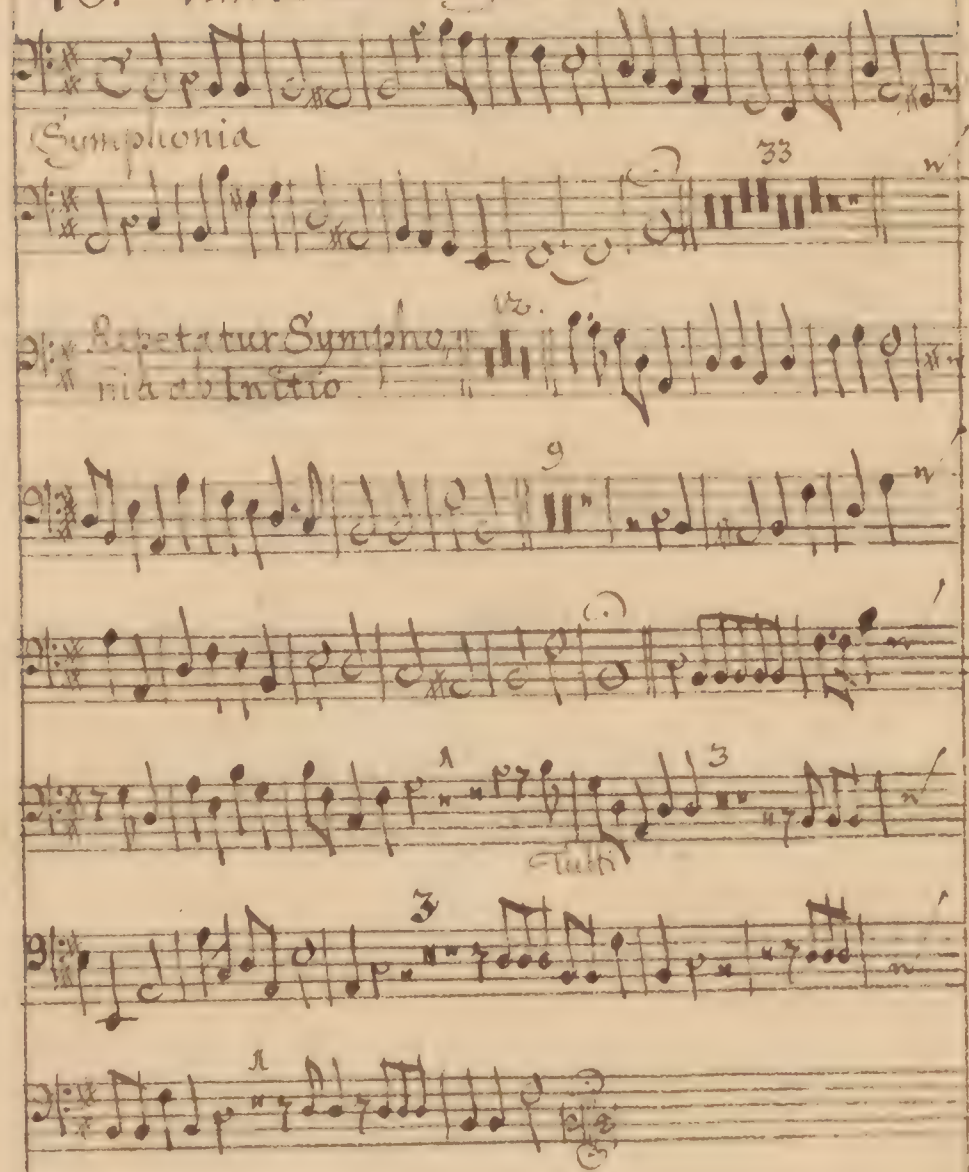 Symphonia
33
Repetatur Sympho,,
nia ab Initio
12.
9
1
3
Tutti
3
1